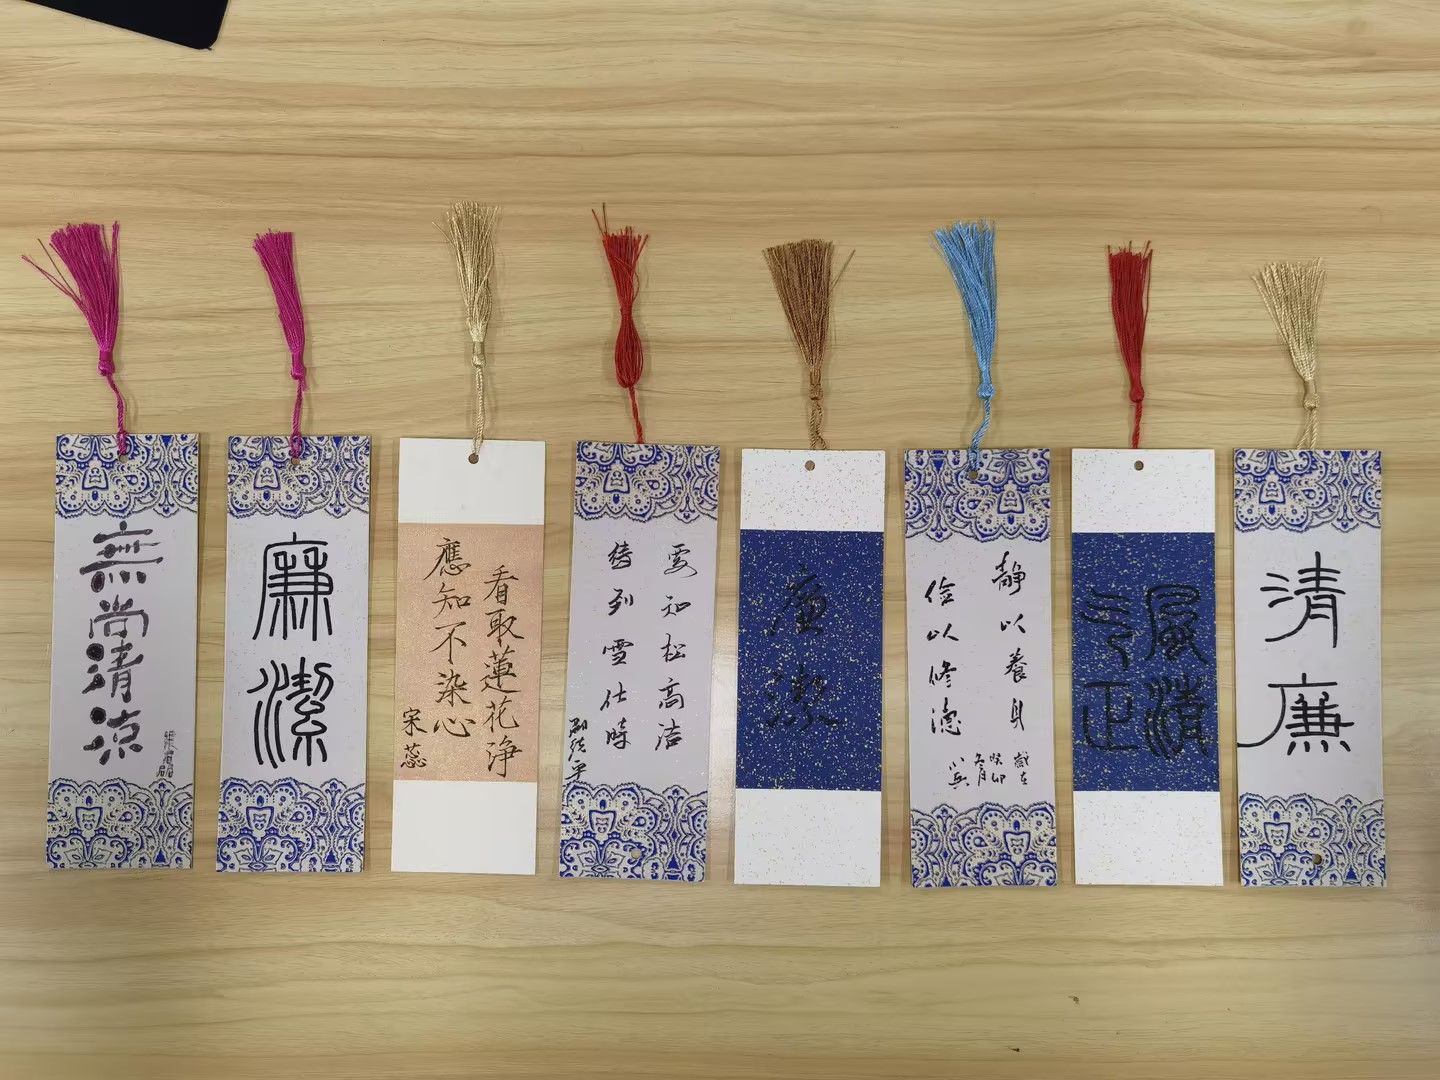 無尚清涼
廉潔
看取蓮花净
應知不染心
宋蕊
要知松高洁
待到雪化時
廉潔
静以養身
俭以修德
癸卯
風清
气正
清廉